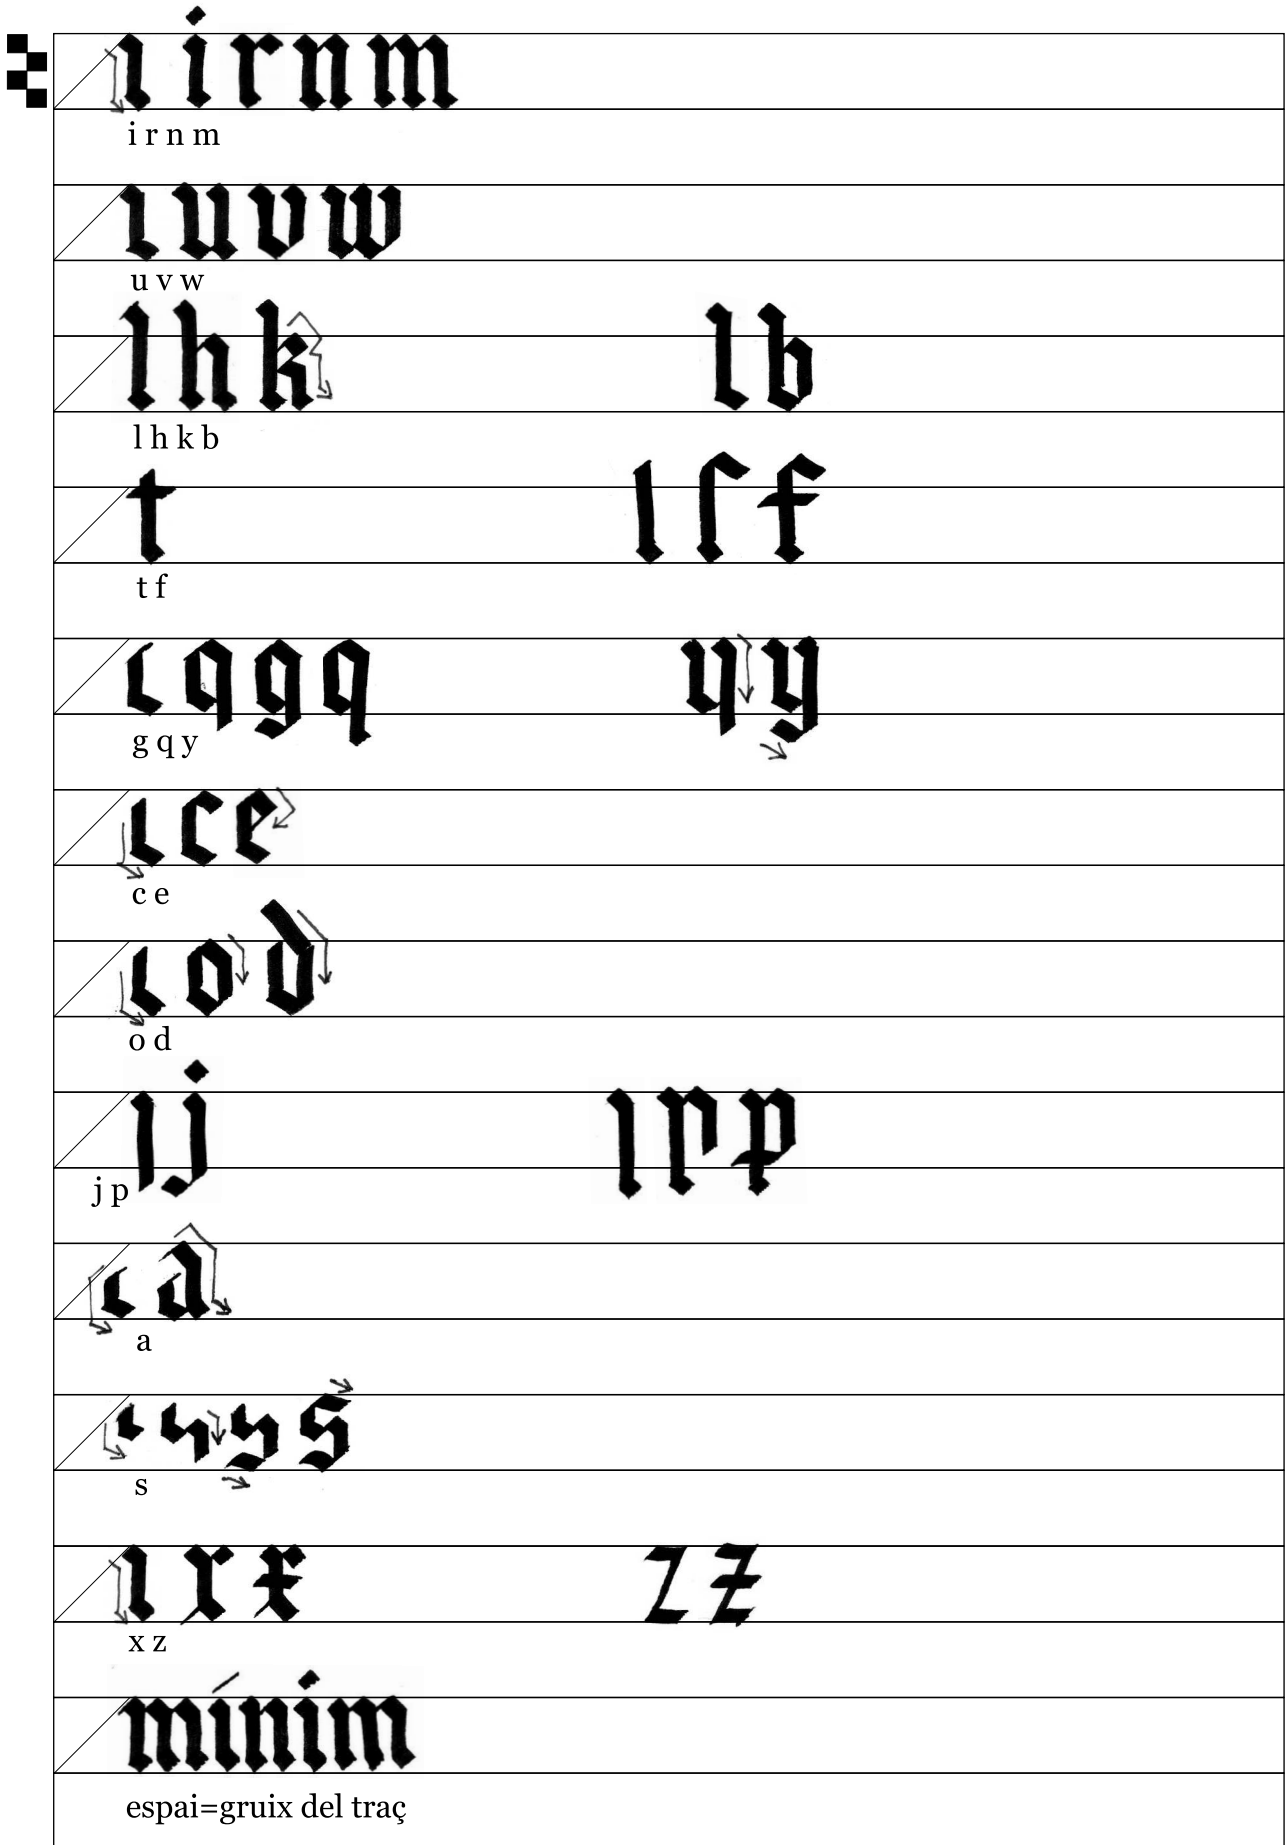 ı i r n m
i r n m
ı u v w
u v w
l h k l b
l h k b
t l ſ f
t f
g q y
g q y
c e
c e
o d
o d
j p
j p
a
a
s
s
ı r x z z
x z
mínim
espai=gruix del traç